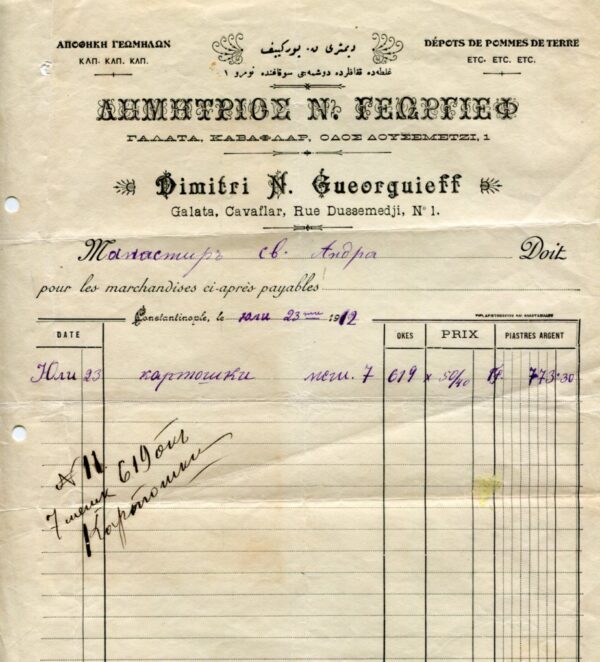 ΑΠΟΘΗΚΗ ΓΕΩΜΗΛΩΝ
ΚΛΠ. ΚΛΠ. ΚΛΠ.
DÉPOTS DE POMMES DE TERRE
ETC. ETC. ETC.
ΔΗΜΗΤΡΙΟΣ Ν. ΓΕΩΡΓΙΕΦ
ΓΑΛΑΤΑ, ΚΑΒΑΦΛΑΡ, ΟΔΟΣ ΔΟΥΣΕΜΕΤΖΙ, 1
Dimitri N. Gueorguieff
Galata, Cavaflar, Rue Dussemedji, Nº 1.
М Манастиръ св. Андра Doit
pour les marchandises ci-après payables
Constantinople, le юли 23 1912
DATE OKES PRIX PIASTRES ARGENT
Юли 23 картошки меш. 7 619 x 50/40 773.30
№ 11.
619 окъ
Картошки